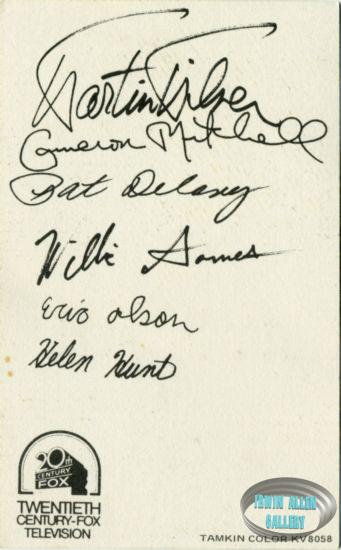 Martin Milner
Cameron Mitchell
Pat Delany
Willie Aames
Eric Olson
Helen Hunt
20th
CENTURY
FOX
TWENTIETH
CENTURY-FOX
TELEVISION
IRWIN ALLEN
GALLERY
TAMKIN COLOR KV8058